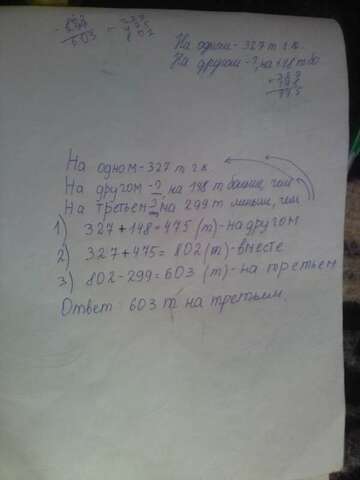 603
На одном - 327 т г.к.
На другом - ?, на 148 т бо
На одном - 327 т г.к
На другом - ?, на 148 т больше, чем
На третьем ?, на 299 т меньше, чем
1) 327 + 148 = 475 (т) - на другом
2) 327 + 475 = 802 (т) - вместе
3) 802 - 299 = 603 (т) - на третьем
Ответ: 603 т на третьем.